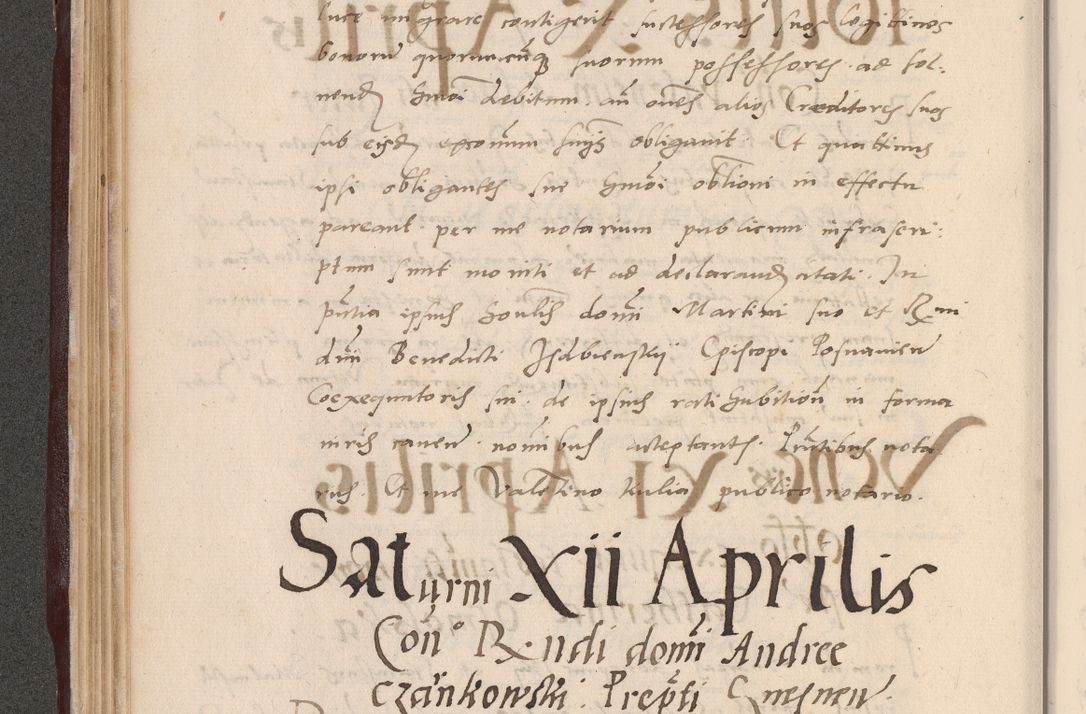 luce migrare contigerit successores suos legittimos
bonorum quorumcunq suorum possessores ad sol-
uend hmoi debitum an omes alios Creditores suos
sub eisd expomum suijs obligauit Et quattinus
ipsi obligantes sue hmoi obligoni in effectu
pareant per me notarium publicum infrascri:
ptum sunt moniti et ad declarand citati. In
pntia ipsius honlis domi Martini suo et Rmi
dni Benedicti Isdbienskij Episcopi Posnanien
Coexequutoris sui de ipsius ratihabition in forma
iuris canen nomibus acceptantes Pntibus nota
rus. Et me Valentino Kulia publico notario.
Saturni Xii Aprilis
Con° R~ndi domi Andree
Czarnkowski Prepti Gnesnen